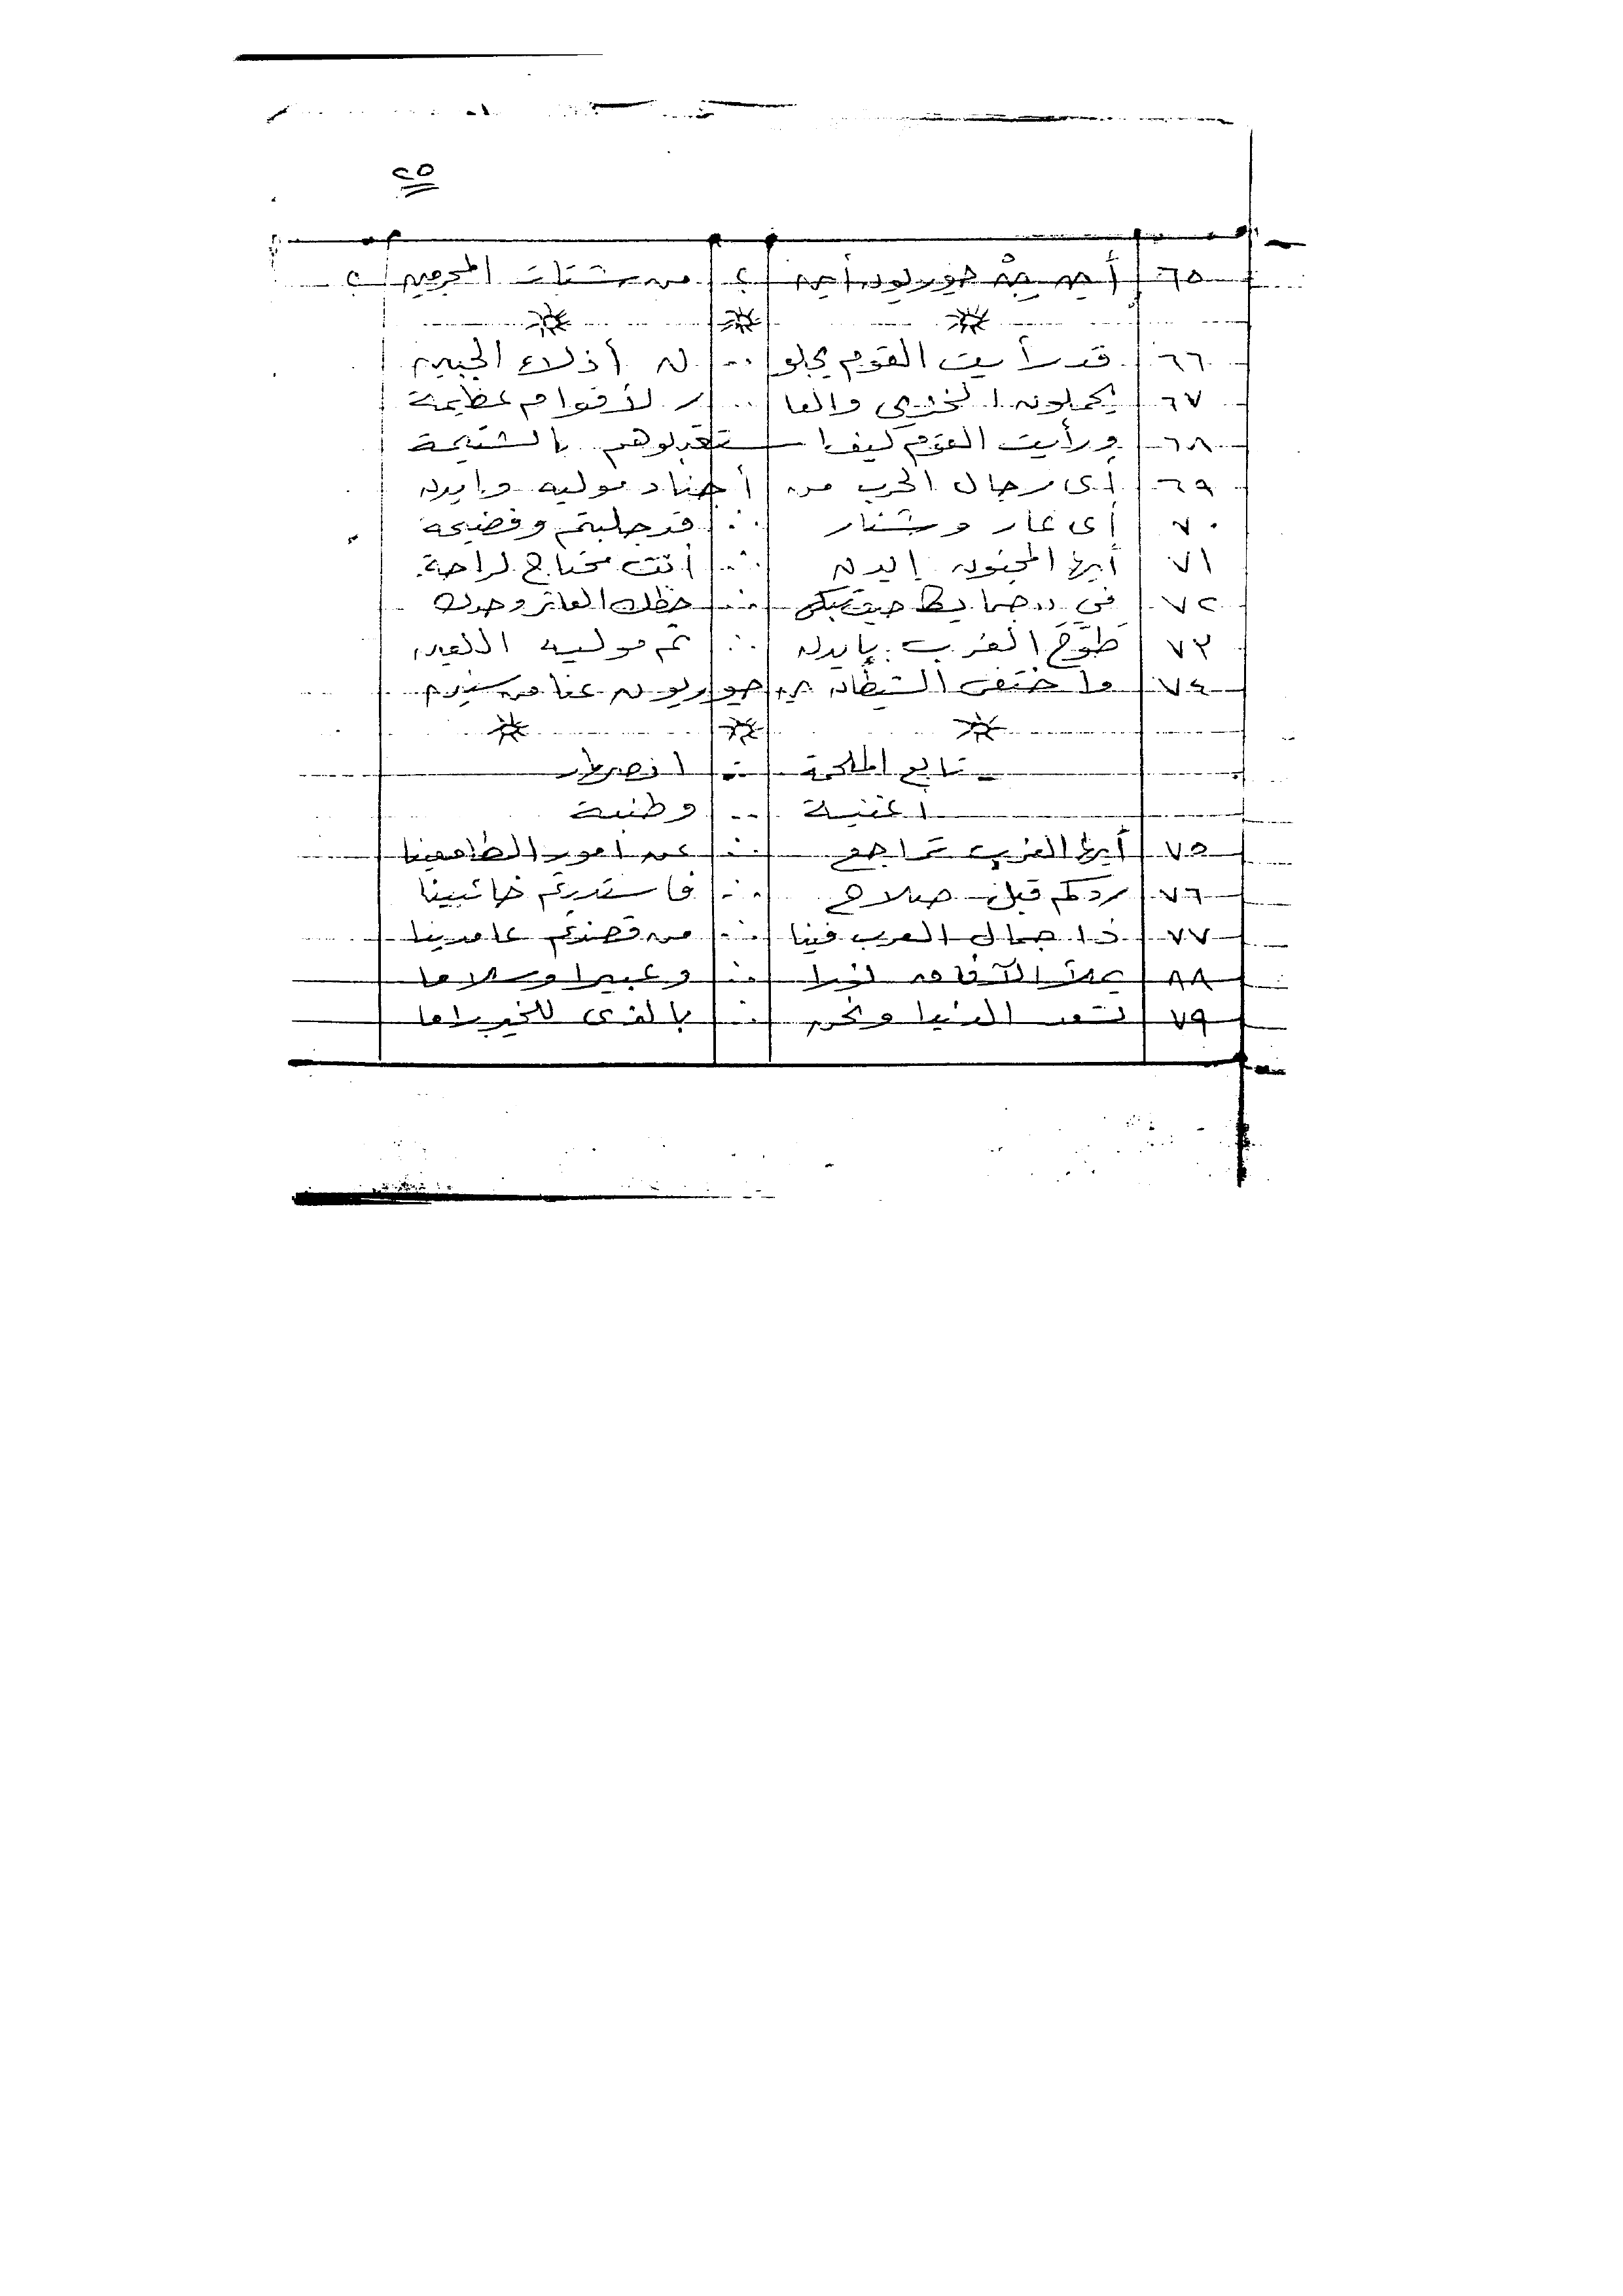 ٢٥
٦٥ أين بن جوريون أين ؟ من شتات المجرمين ؟
٦٦ قد رأيت القوم يجلو .. ن أذلاء الجبين
٦٧ يحملون الخزي والعا .. ر لأقوام عظيمة
٦٨ ورأيت القوم كيف استقبلوهم بالشتيمة
٦٩ أى رجال الحرب من أجناد موليه وايدن
٧٠ أى عار وشنار ∴ قد جلبتم وفضيحة
٧١ أيها المجنون إيدن ∴ أنت محتاج لراحة
٧٢ في جمايكا حيث تبكى ∴ حظك العاثر وحدك
٧٣ طوَّحَ الغرب بإيدن ∴ ثم موليه اللعين
٧٤ واختفى الشيطان بن جوريون عنا من سنين
تابع الملحمة ∴ انصهار
اغنية .. وطنية
٧٥ أيها الغرب تراجع ∴ عن امور الطامعينا
٧٦ ردكم قبل صلاح ∴ فاستدرتم خائبينا
٧٧ ذا جمال العرب فينا ∴ من قصدتم عامدينا
٨٨ يملأ الآفاق نورا ∴ وعبيرا وسلاما
٧٩ تسعد الدنيا ونحن ∴ بالذى للخير راما